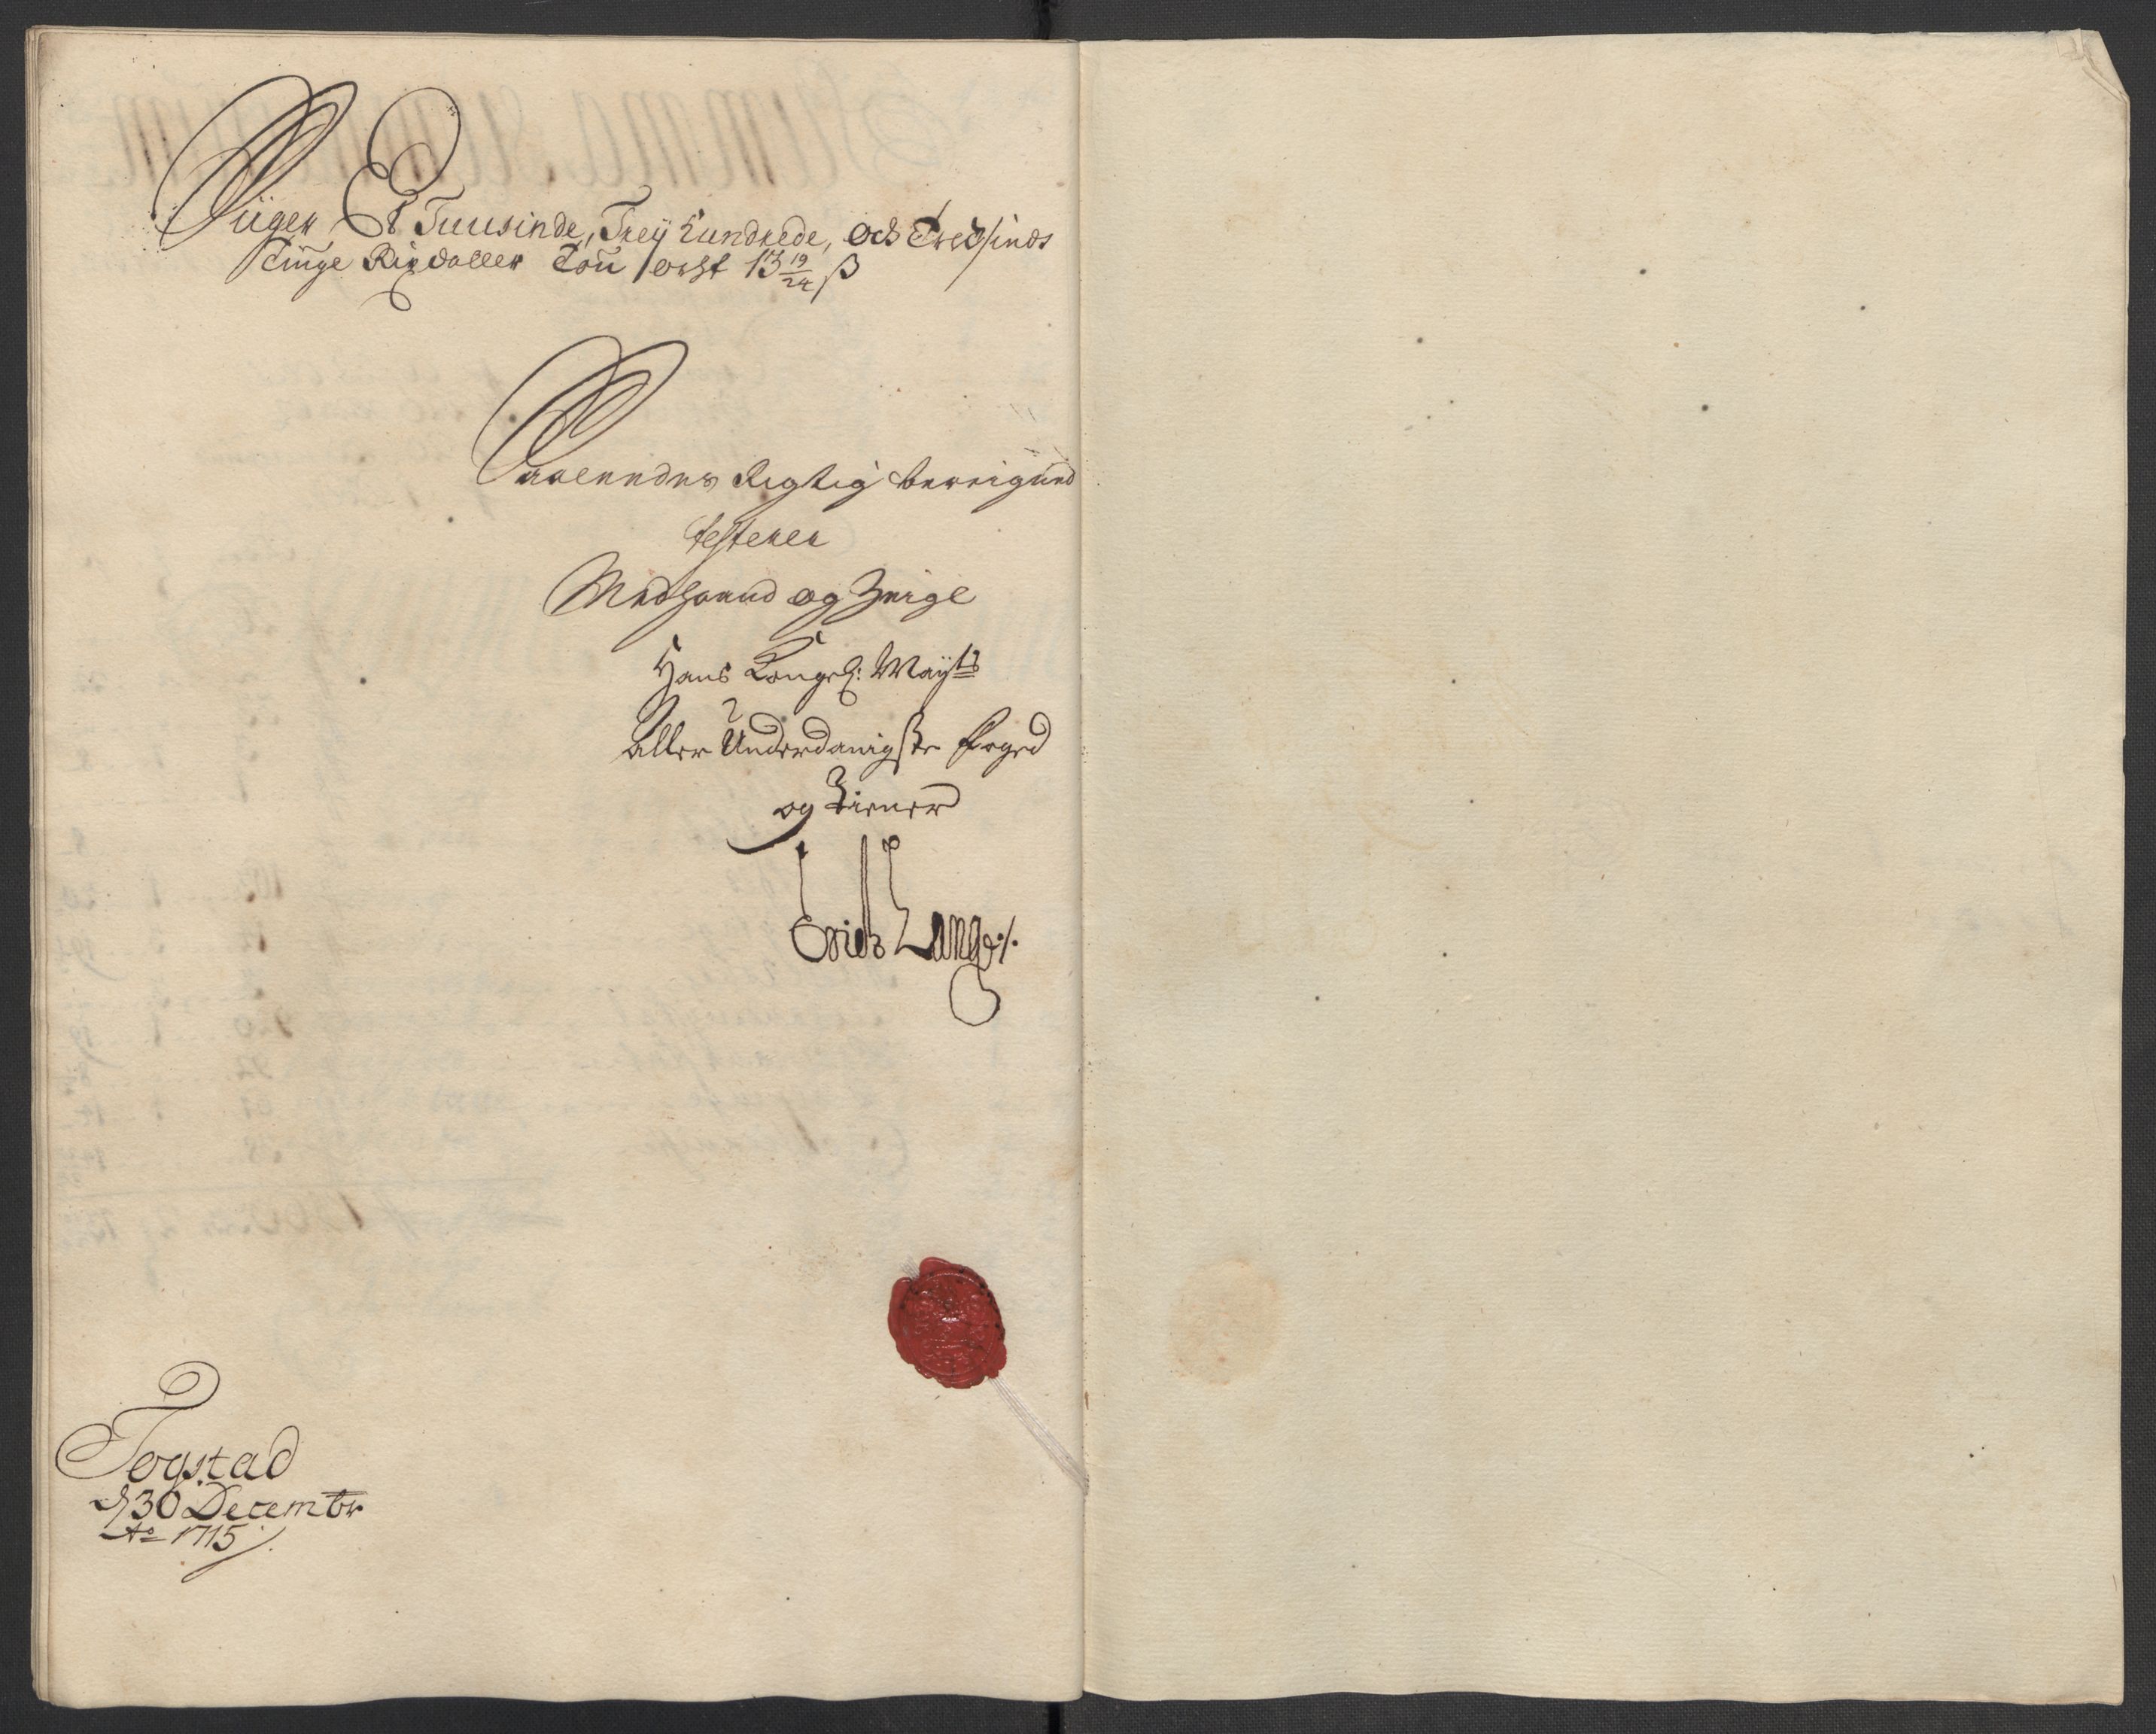 Siiger Et Tuusinde, Trey hundrede, och Tredsinds
Tiuge Rixdaller Tou ocht 13 19/24 ß
Saalendes Rigtig bereigned
testerer
Med haand og Zeigl
Hans Kongel: Mayts
aller Underdanigste foged
og Tiener
Erich Lange ./.
Togstad
d 30 Decembr
Ao 1715